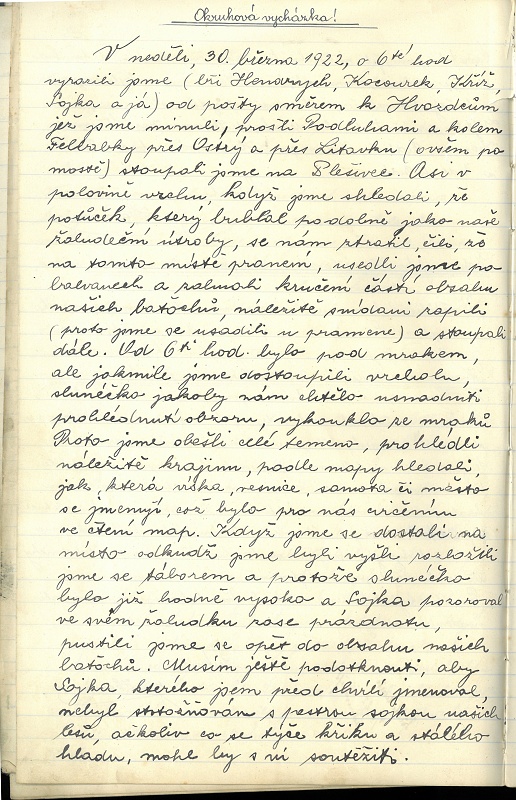 Okruhová vycházka!
V neděli, 30. března 1922, o 6té hod
vyrazili jsme (tři Hendrych, Kocourek, Kříž,
Sojka a já) od pošty směrem k Hvozdcům
jež jsme minuli, prošli Podluhami a kolem
přes Ostrý a přes Litavku (ovšem po
mostě) stoupali jsme na Plešivec. Asi v
polovině vrchu, když jsme shledali, že
potůček, který bublal podobně jako naše
žaludeční útroby, se nám ztratil, čili, že
na tomto místě pramení, usedli jsme po
balvanech a zahnali kručení částí obsahu
našich batochů, náležitě snídani zapili
(proto jsme se usadili u pramene) a stoupali
dále. Od 6ti hod. bylo pod mrakem,
ale jakmile jsme dostoupili vrcholu,
slunéčko jakoby nám chtělo usnadniti
prohlédnutí obzoru, vykouklo ze mraků
Proto jsme obešli celé temeno, prohlédli
náležitě krajinu, podle mapy hledali,
jak, která víska, vesnice, samota či město
se jmenují, což bylo pro nás cvičením
ve čtení map. Když jsme se dostali na
místo odkudž jsme byli vyšli rozložili
jsme se táborem a protože slunéčko
bylo již hodně vysoko a Sojka pozoroval
ve svém žaludku zase prázdnotu,
pustili jsme se opět do obsahu našich
batochů. Musím ještě podotknouti, aby
Sojka, kterého jsem před chvílí jmenoval,
nebyl ztotožňován s pestrou sojkou našich
lesů, ačkoliv co se týče křiku a stálého
hladu, mohl by s ní soutěžiti.